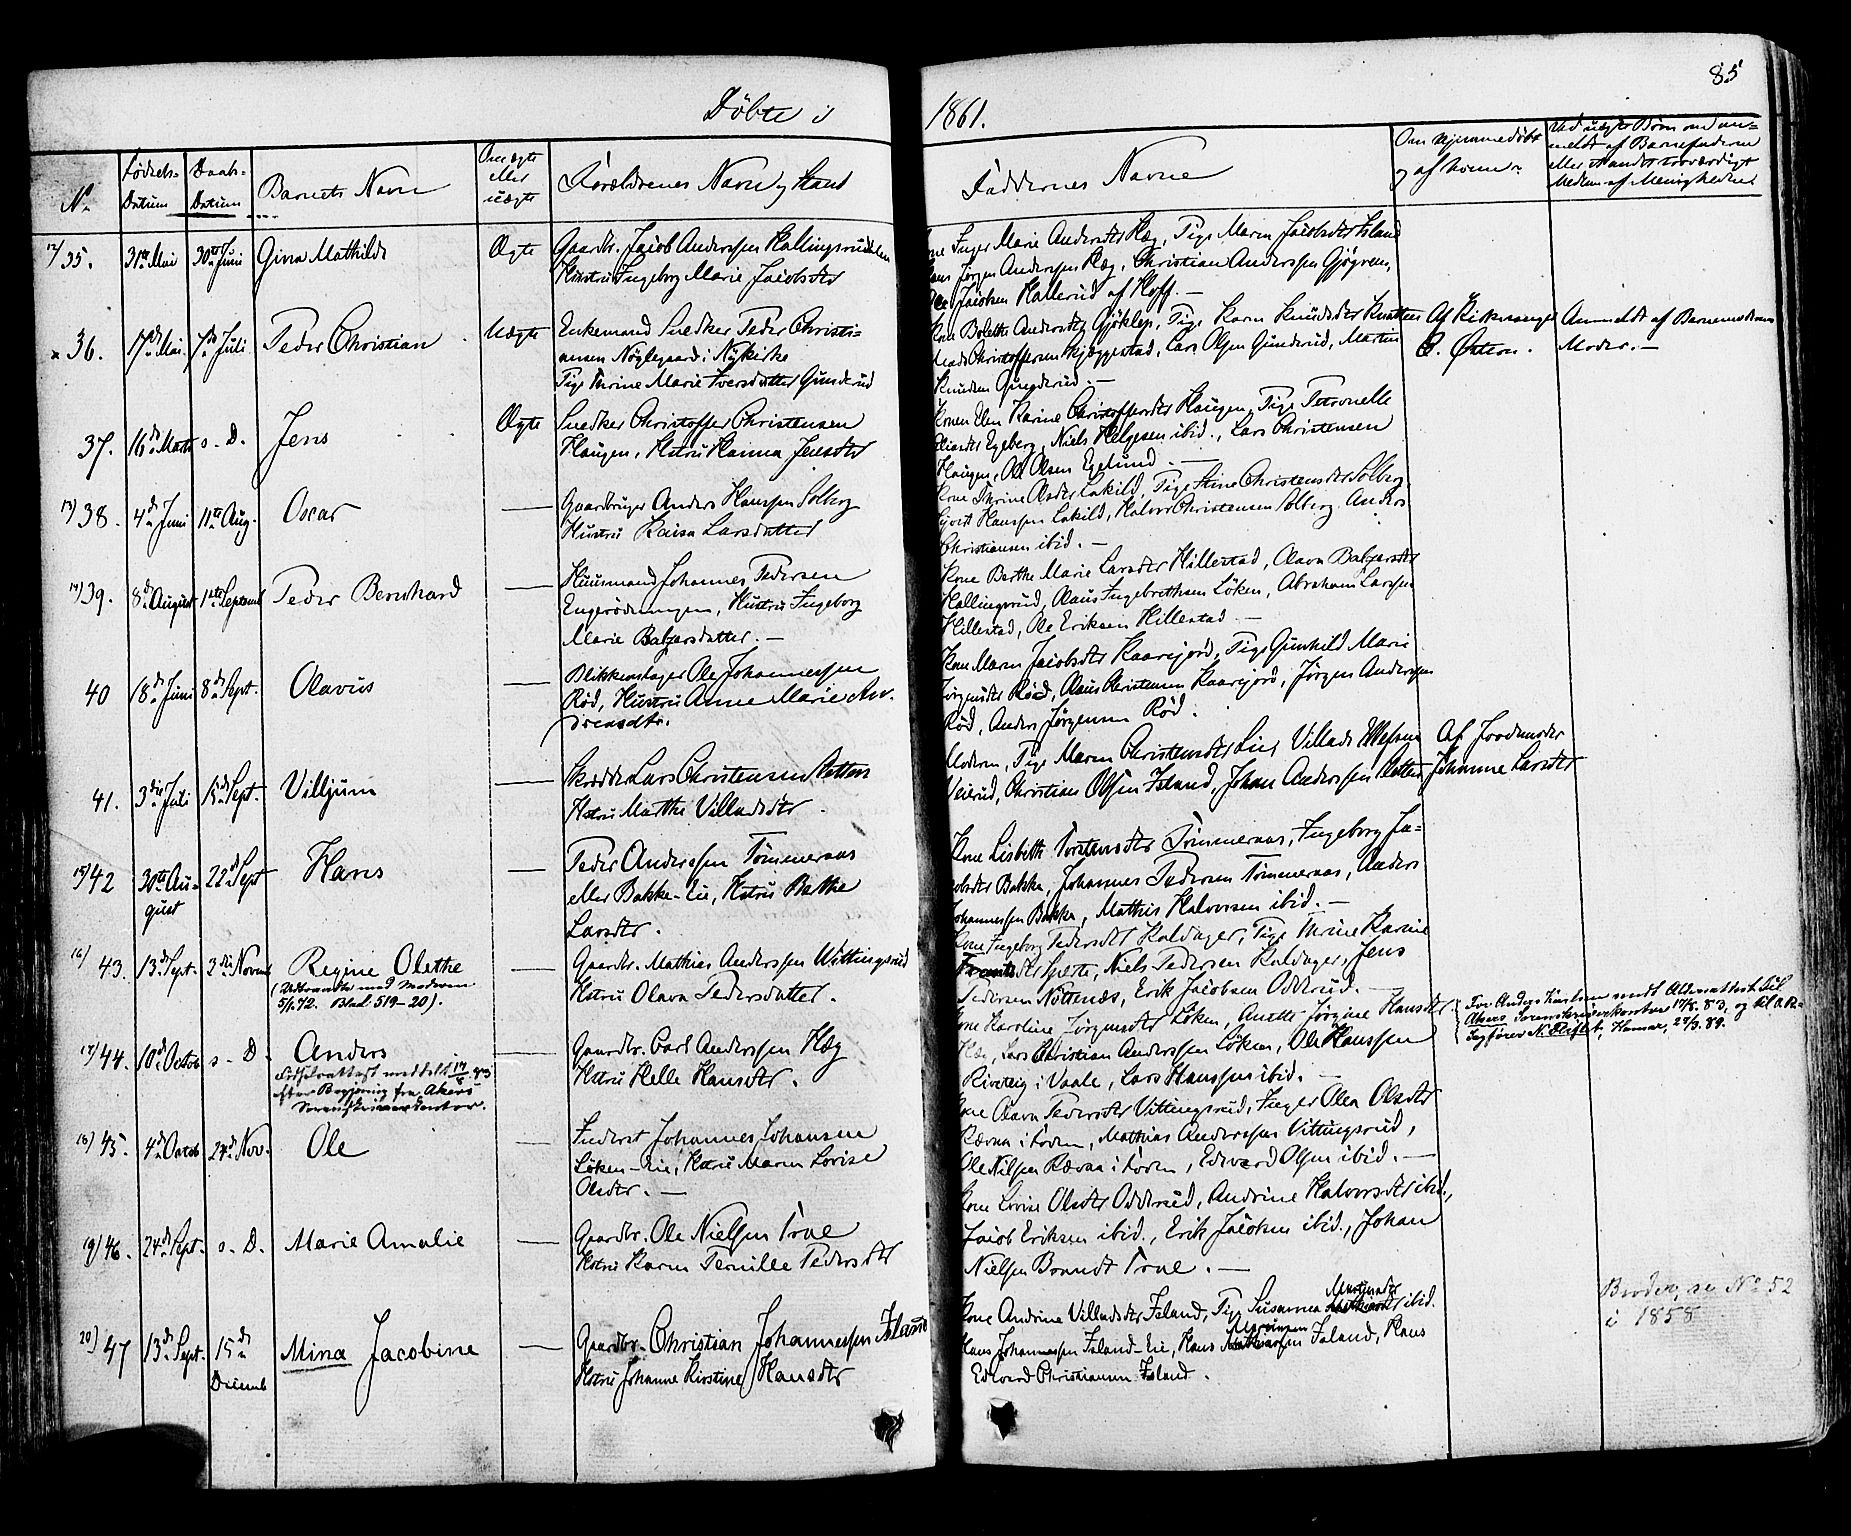 Döbte i 1861.
85
No
Fødsels-
Datum
Daabs-
Datum
Barnets Navn
Om ægte
eller
uægte
Forældrenes Navn og Stand
Faddernes Navne
Om hjemmedøbt
og af hvem
Ved uægte Børn om an-
meldt af Barnefaderen
eller et andet troværdigt
Medlem af Menigheden.
12/35. 31te Mai 30te Juni Gina Mathilde Ægte
Gaardbr. Jacob Anderssen Hallingsrüd
Hustru Ingeborg Marie Jacobsdtr
Kone Inger Marie Andersdtr Hæg, Pige Maren Jacobsdtr Island
Hans Jørgen Anderssen Hæg, Christian Anderssen
Jacobsen Hallerud af Hoff. —
36. 17de Mai. 7de Juli Peder Christian Uægte
Enkemand Snedker Peder Christi-
ansen Nøglegaard i Nykirke
Pige Thrine Marie Iversdatter Gunderud
Kone Bolette Andersdtr Gjøklep, Pige Karen Knudsdtr
Mads Christoffersen Skjæggestad, Lars Olsen Gunderud, Martin
Knudsen Gunderud. —
Af Kirkesanger
Østern.
Anmeldt af Barnemoderens
Moder. —
37. 16de Marts s. D. Jens Ægte
Snedker Christoffer Christensen
Haugen, Hstru Hanna Jensdtr
Konen Elen Karine Christoffersdtr Haugen, Pige Petronelle
Eliasdtr Egeberg, Niels Helgesen ibid., Lars Christensen
Haugen, Ole Olsen Egelund. —
13) 38. 4de Juni 11te Aug. Oscar —
Gaardbruger Anders Hanssen Solberg
Hustru Raisa Larsdatter
Kone Thrine Olsdtr Lakild, Pige Stine Christensdtr Solberg
Hanssen Lakild, Halvor Christensen Solberg, Anders
Christiansen ibid. —
14) 39. 8de August 1ste Septemb Peder Bernhard —
Huusmand Johannes Pedersen
Engerödningen, Hustru Ingeborg
Marie Balzersdatter. —
Kone Berthe Marie Larsdtr Hillestad, Olava Balzersdtr
Hallingsrud, Olaus Ingebrethsen Löken, Abraham Larsen
Hillestad, Ole Eriksen Hillestad —
40 18de Juni 8de Sept. Olavus —
Blikkenslager Ole Johannessen
Röd, Hustru Anne Marie An-
dreasdtr.
Kone Maren Jacobsdtr Kaarejord, Pige Gunhild Marie
Jørgensdtr Röd, Olaus Christensen Kaarejord, Jörgen Anderssen
Röd, Anders Jörgensen Röd.
41. 3die Juli 15de Sept. Villjum —
Skrædder Lars Christensen
Hstru Marthe Villadsdtr.
Moderen, Pige Maren Christensdtr Lie, Villads
Veierud, Christian Olsen Island, Johan Anderssen
Af Jordemoder
Johanne Larsdtr
15) 42 30te Au-
gust 22de Sept Hans —
Peder Anderssen Tömmeraas
eller Bakke-Eie, Hstru Bethe
Larsdtr.
Kone Lisbeth Torstensdtr Tömmeraas, Ingeborg Ja-
cobsdtr Bakke, Johannes Pedersen Tömmeraas, Anders
Johannessen Bakke, Mathis Halvorsen ibid. —
16) 43. 13de Sept. 3die Novemb Regine Olethe —
(Udvandrer med Moderen
5/1.72. Blad. 519-20).
Gaardbr. Mathias Anderssen Wittingsrud
Hstru Olava Pedersdatter.
Kone Ingeborg Pedersdtr Haldager, Pige Thrine Karine
Niels Pedersen Haldager, Jens
Pedersen Nöttenæs, Erik Jacobsen Odderud. —
17) 44. 10de Octob s. D. Anders —
Fødselsattest meddelt 17/8 83
efter Begjæring fra Akers
Sorenskriverkontor.
Gaardbr. Carl Anderssen Hæg
Hstru Helle Hansdtr.
Kone Karoline Jörgensdtr Löken, Anette Jörgine Hansdtr
Hæg, Lars Christian Anderssen Löken, Ole Hanssen
i Vaale, Lars Hanssen ibid. —
For Anders Karlsen medt Aldersattest til
Akers Sorenskriverkontor 17/8. 83, og til O. R.
Sagfører N. Hamar, 27/3. 84.
18) 45. 4de Octob 24de Nov. Ole —
Inderst Johannes Johansen
Löken-Eie, Hstru Maren Lovise
Olsdtr. —
Kone Olava Pedersdtr Vittingsrud, Inger Olea Olsdtr
Rævaa i Toden, Mathias Anderssen Vittingsrud,
Ole Nilsen Rævaa i Toden, Edvard Olsen ibid. —
19) 46. 24de Sept. s. D. Marie Amalie —
Gaardbr. Ole Nielsen
Hstru Karen Pernille Pedersdtr
Kone Lovise Olsdtr Odderud, Andrine Halvorsdtr ibid,
Jacob Eriksen ibid., Erik Jacobsen ibid., Johan
Nielsen Brandt —
20) 47 13de Sept. 15de
Decemb Mina Jacobine —
Gaardbr. Christian Johannessen Island
Hstru Johanne Kirstine Hansdtr
Kone Andrine Villadsdtr Island, Pige Susanna Martinsdtr ibid.
Hans Johannessen Island-Eie, Hans Island, Hans
Edvard Christiansen Island.
Broder, se No 52
i 1858